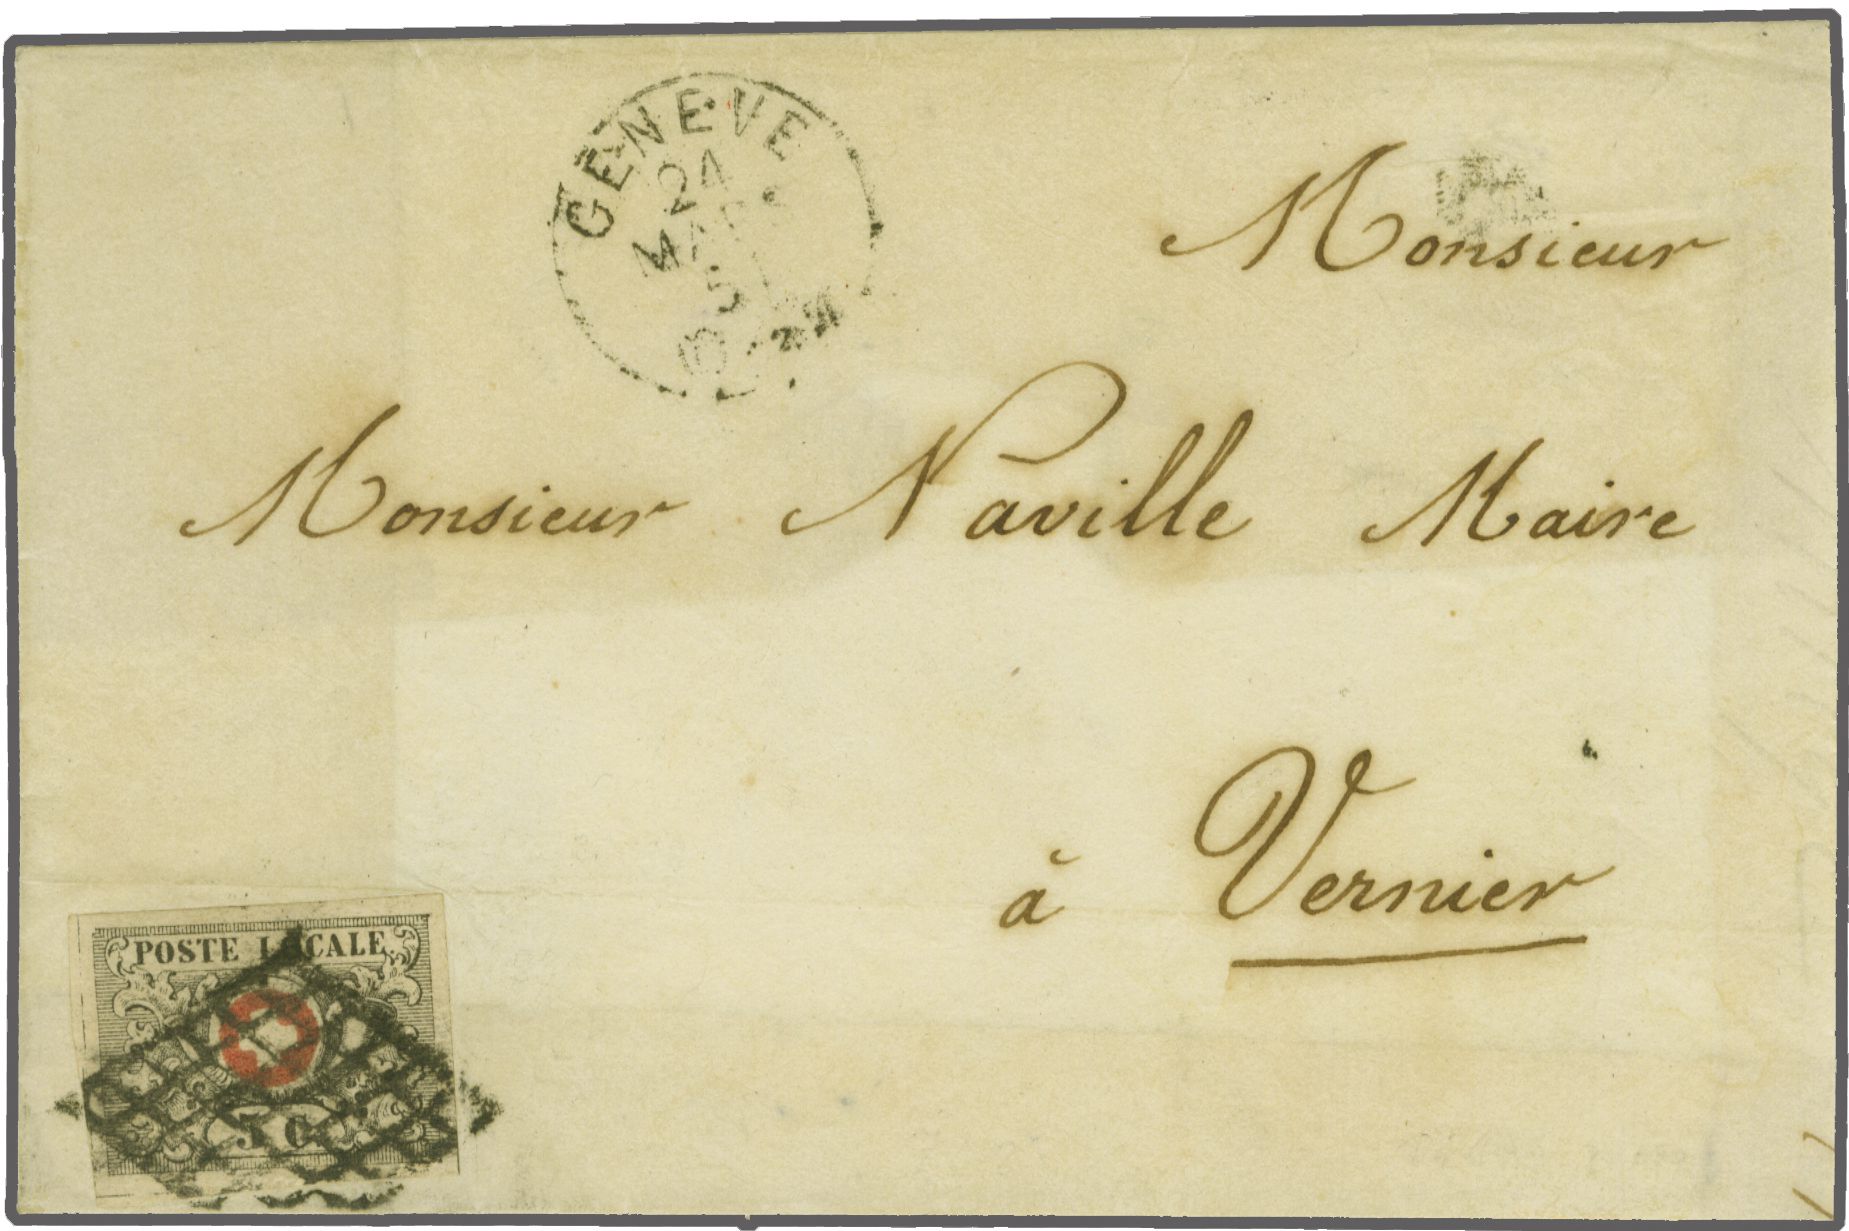 GENÈVE
24
MARS
5
Monsieur
Monsieur Naville Maire
à Vernier
POSTE LOCALE
5 C